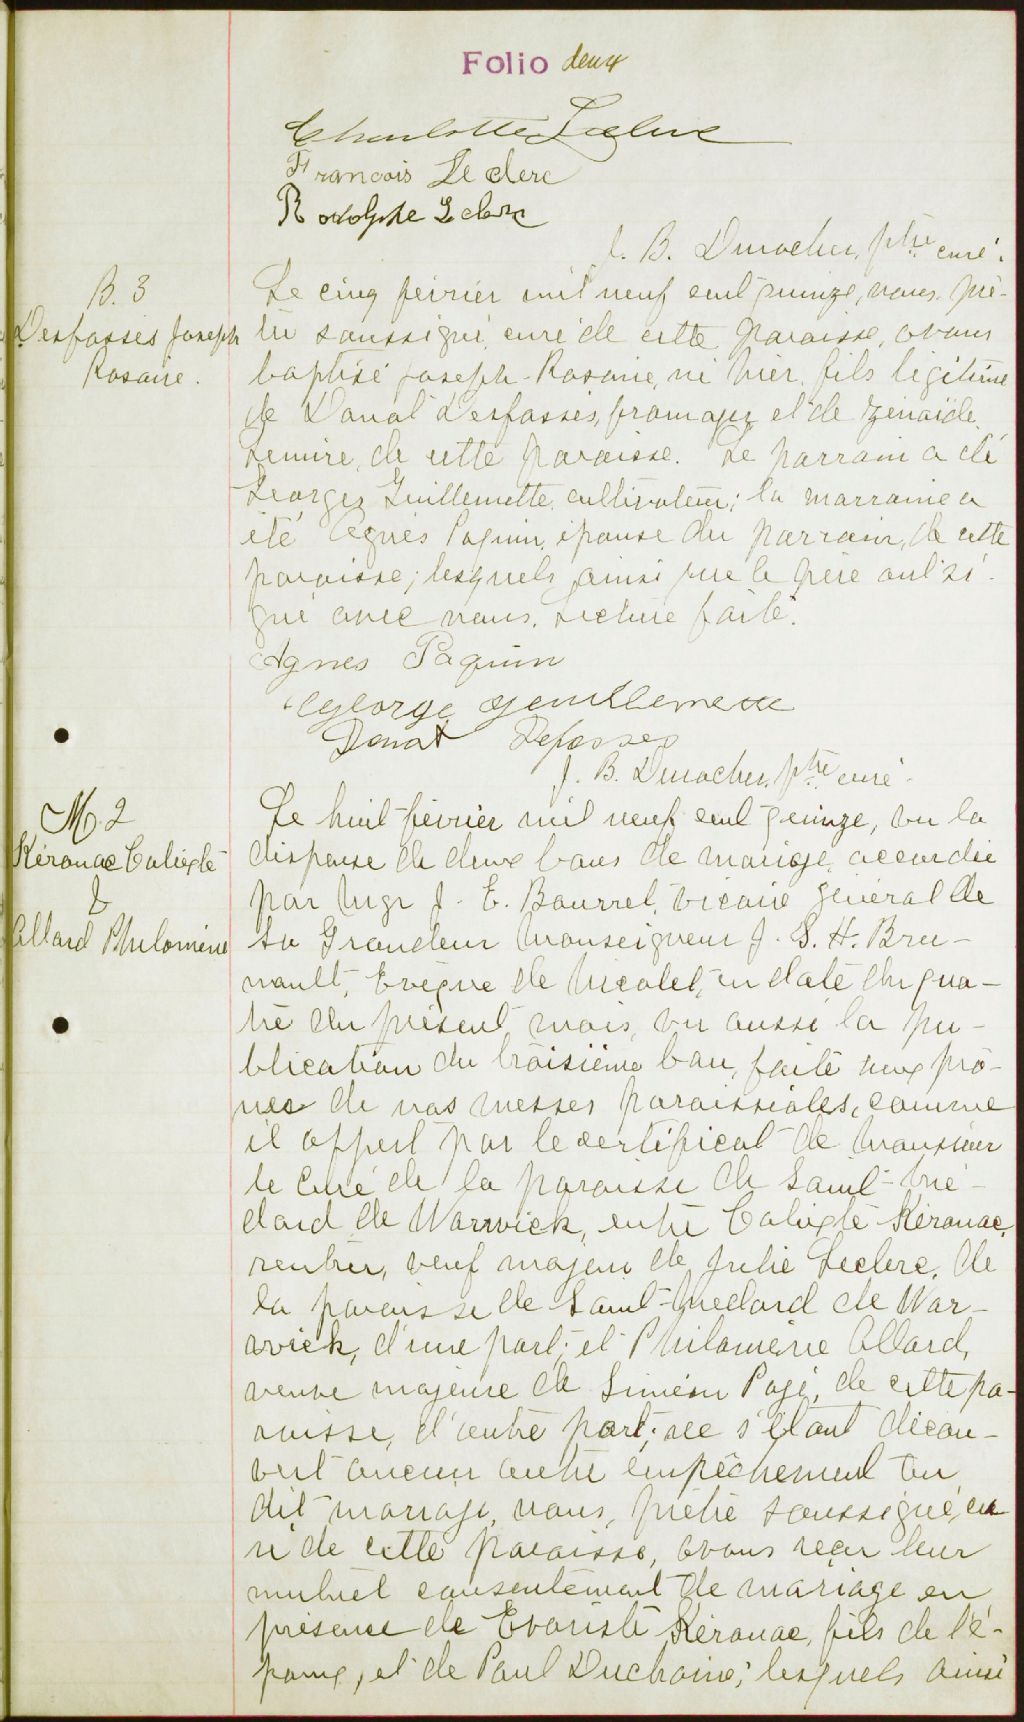 Folio deux
Charlotte Leclerc
Francois Leclerc
Rodolphe Leclerc
J. B. Durocher, ptre curé.
B. 3
Desfossés Joseph
Rosaire.
Le cinq février mil neuf cent quinze, nous prê-
tre soussigné, curé de cette paroisse, avons
baptisé Joseph-Rosaire, né hier, fils légitime
de Donat Desfossés, fromager et de Zénaïde
Lemire, de cette paroisse. Le parrain a été
Georges Guillemette, cultivateur; la marraine a
été Agnès Paquin, épouse du parrain, de cette
paroisse; lesquels ainsi que le père ont si-
gné avec nous. Lecture faite.
Agnes Paquin
George Guillemette
Donat Defosses
J. B. Durocher, ptre curé.
M. 2
Kérouac Calixte
&
Allard Philomène
Le huit février mil neuf cent quinze, vu la
dispense de deux bans de mariage accordée
par Mgr J. E. Bourret, vicaire général de
Sa Grandeur Monseigneur J. S. H. Bru-
nault, Evêque de Nicolet, en date du qua-
tre du présent mois, vu aussi la pu-
blication du troisième ban, faite aux prô-
nes de nos messes paroissiales, comme
il appert par le certificat de Monsieur
le Curé de la paroisse de Saint-Mé-
dard de Warwick, entre Calixte Kérouac,
rentier, veuf majeur de Julie Leclerc, de
la paroisse de Saint-Médard de War-
wick, d'une part; et Philomène Allard,
veuve majeure de Siméon Pagé, de cette pa-
roisse, d'autre part; ne s'étant décou-
vert aucun autre empêchement au
dit mariage, nous, prêtre soussigné, cu
ré de cette paroisse, avons reçu leur
mutuel consentement de mariage en
présence de Evariste Kérouac, fils de l'é-
poux, et de Paul Duchaine; lesquels ainsi